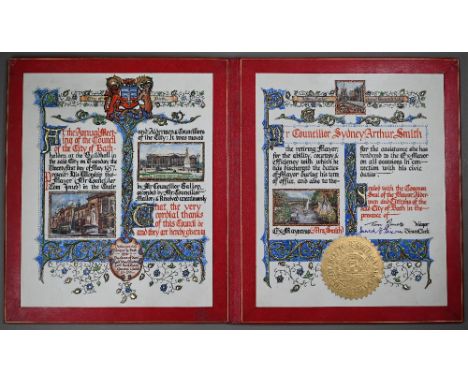 At the Annual Meet-
ing of the Council
of the City of Bath
holden at the Guildhall in
the said City on Thursday the
first day of May 1972
Present: His Worship the
Mayor Mr Councillor
Tom Jones) in the Chair
and Aldermen & Councillors
of the City: It was moved
by Mr Councillor
seconded by Mr Councillor
& Resolved unanimously
That the very
cordial thanks
of this Council be
and they are hereby given
Mr Councillor, Sydney Arthur Smith
the retiring Mayor
for the ability, courtesy &
efficiency with which he
has discharged the duties
of Mayor during his term
of office, and also to the
Ex Mayoress (Mrs Smith)
for the assistance she has
rendered to the Ex Mayor
on all occasions in con-
nection with his civic
duties
Sealed with the Common
Seal of the Mayor Alder-
men and Citizens of the
said City of Bath in the
presence of
Tom Jones Mayor
Town Clerk